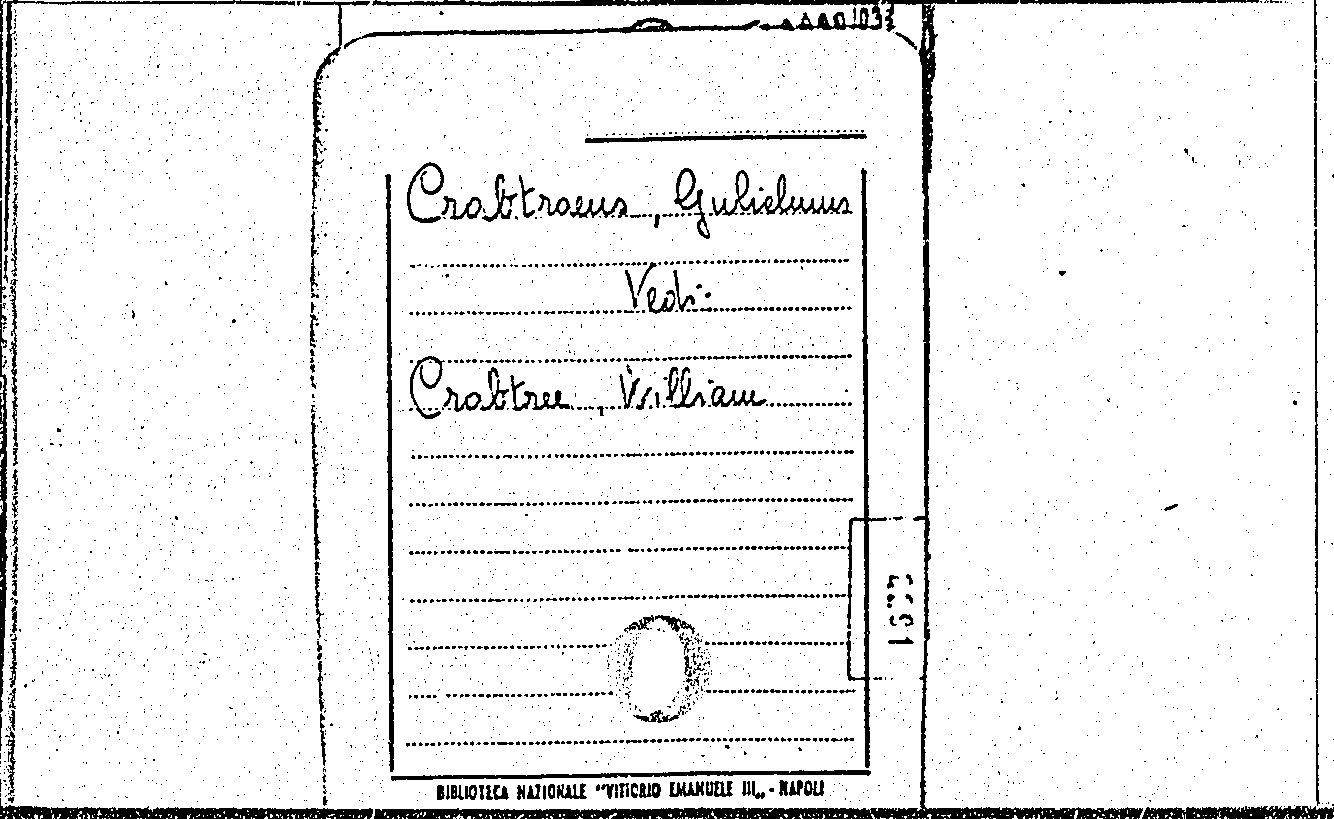 Crabtraeus, Gulielmus
Vedi:
Crabtree, William
BIBLIOTECA NAZIONALE "VITTORIO EMANUELE III„ - NAPOLI